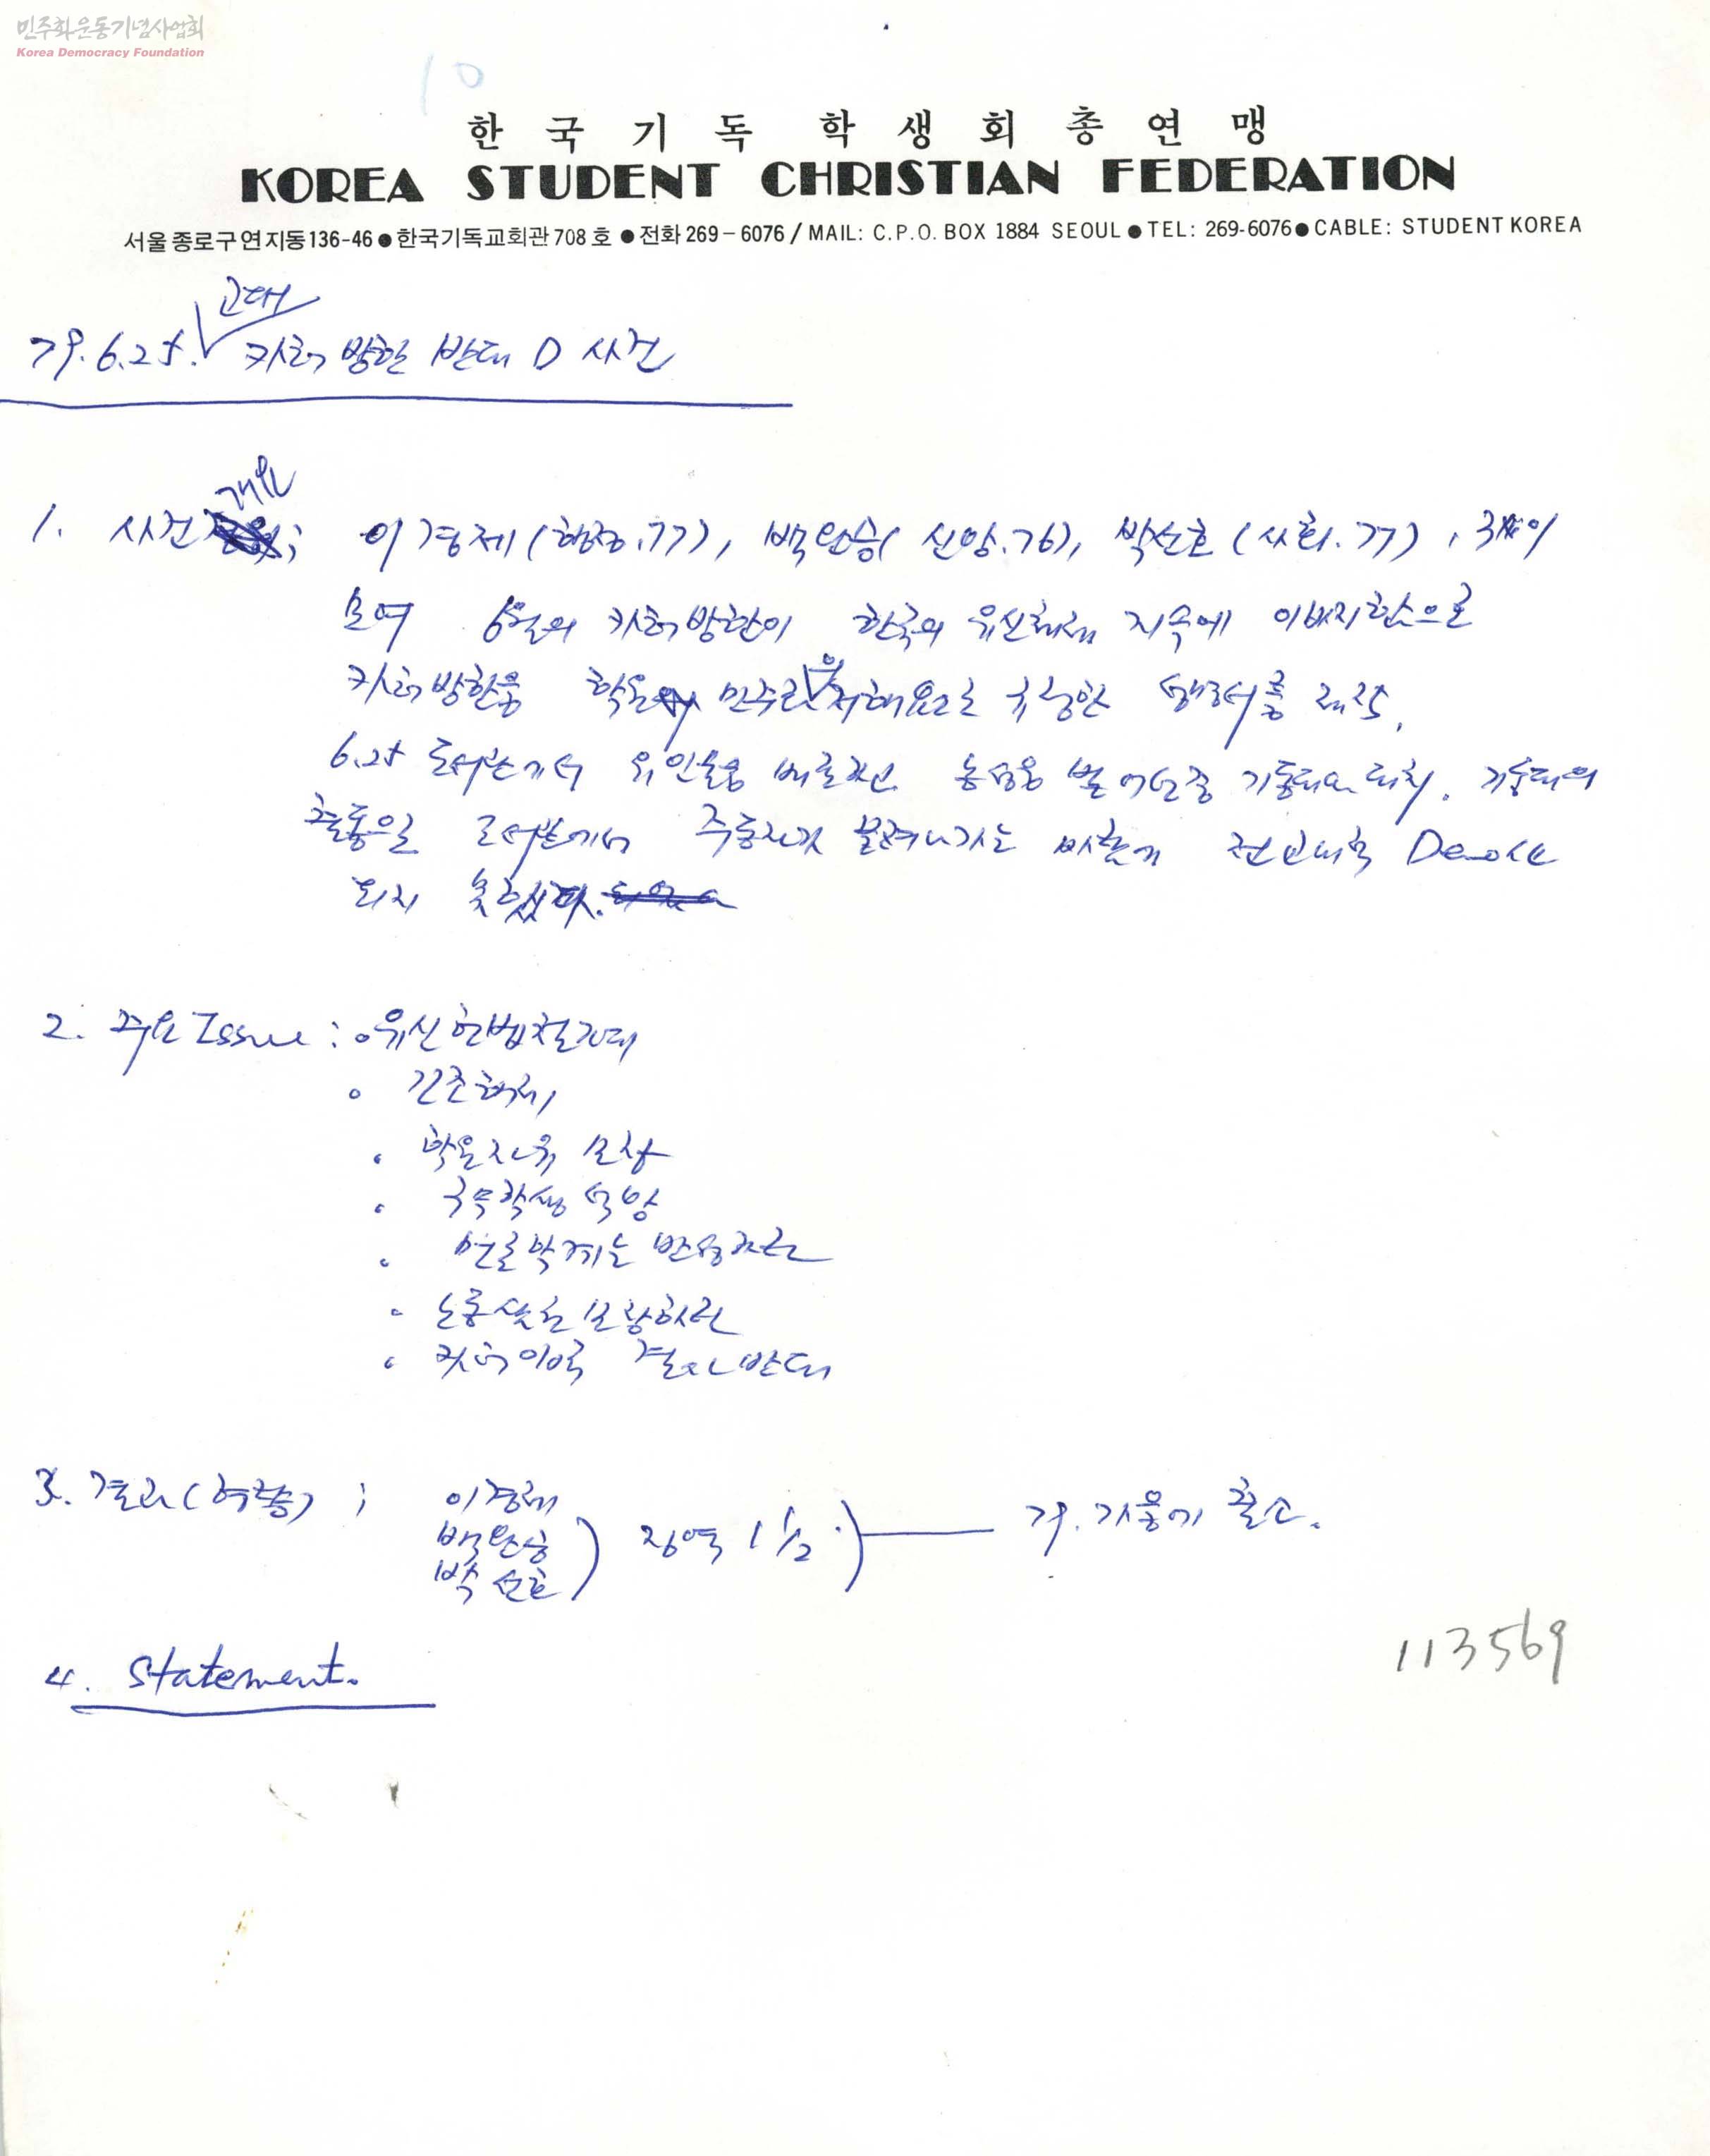 민주화운동기념사업회
Korea Democracy Foundation
10
한국기독학생회총연맹
KOREA STUDENT CHRISTIAN FEDERATION
서울종로구연지동136-46●한국기독교회관708호●전화269-6076/MAIL: C.P.O. BOX 1884 SEOUL●TEL: 269-6076●CABLE: STUDENT KOREA
고대
79.6.25. 카터 방한 반대 D 사건
개요
1. 사건 ; 이경재(행정.77), 백완승( .76), 박선호(사회.77), 3명이
모여 6월의 카터방한이 한국의 유신체제 지속에 이바지함으로
카터방한을 학원 민주화 저해요소로 규정한 을 제작.
6.25 도서관에서 유인물을 배포하고 농성을 벌이던 중 기동대와 대치. 기동대의
출동으로 도서관에서 주동자가 끌려나가는 바람에 전교내적 Demo化
되지 못했다.
2. 주요 Issue : 유신헌법철폐
• 긴조해제
• 학원자유 보장
• 구속학생 석방
• 언론학계는 반성하라
• 노동삼권 보장하라
• 카터의 결사반대
3. 결과(형량) ; 이경재
백완승
박선호 ) 징역 1 1/2 ) — 79. 겨울에 출소.
113569
4. Statement.